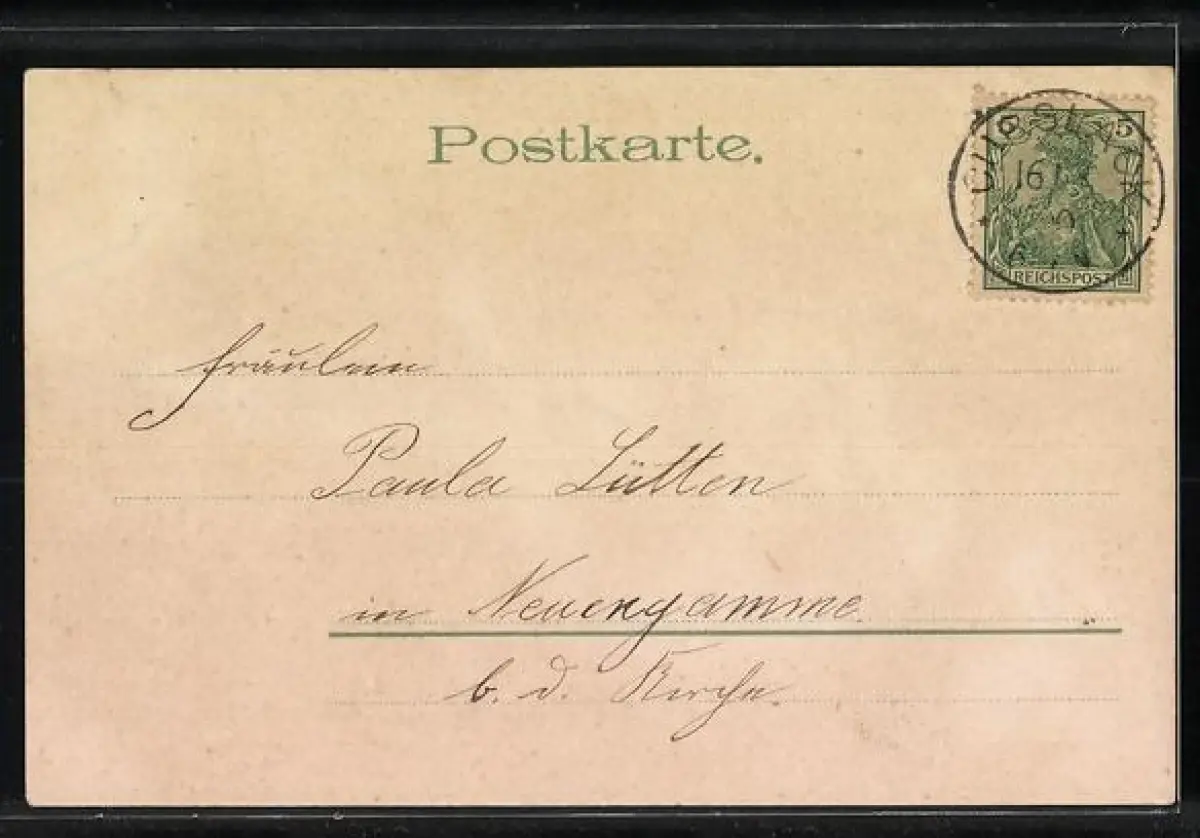 Postkarte.
5 5
REICHSPOST
CURSLACK
16
Fräulein
Paula Lütten
in Neuengamme
b. d. Kirche.